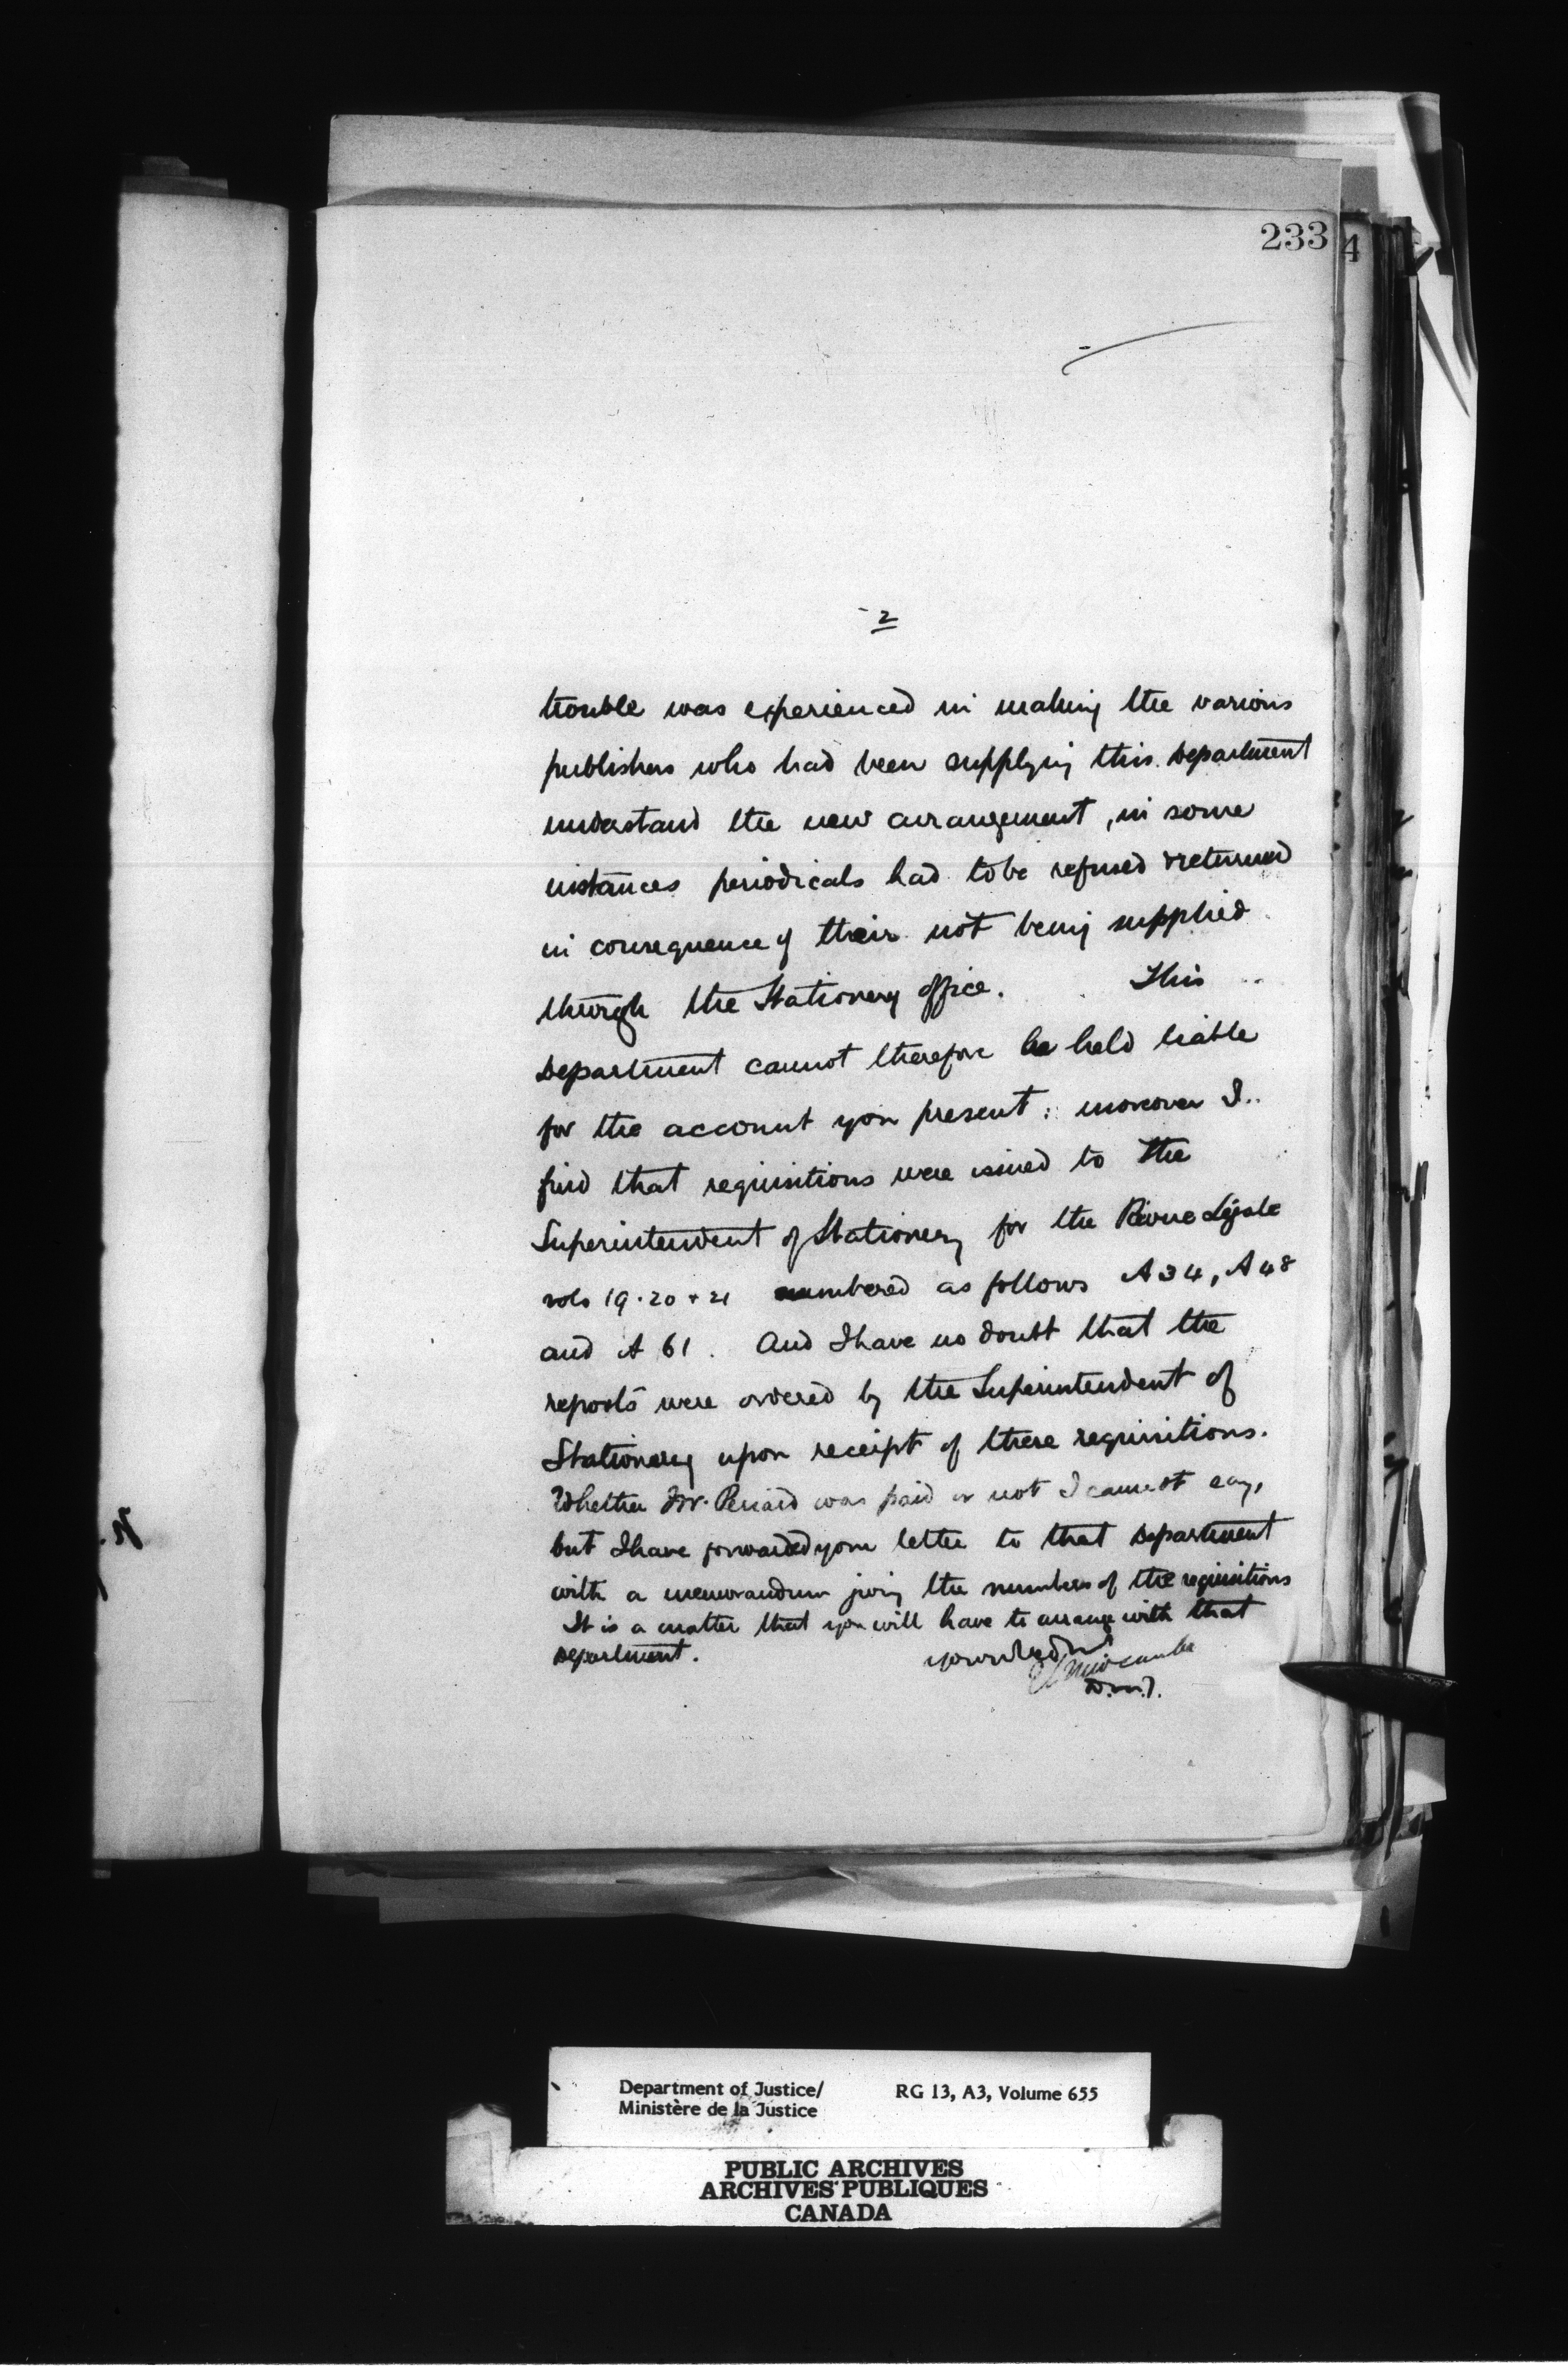 233
4
2
trouble was experienced in making the various
publishers who had been supplying this Department
understand the new arrangement, in some
instances periodicals had to be refused & returned
in consequence of their not being supplied
through the Stationery office. This
Department cannot therefore be held liable
for the account you present: moreover I
find that requisitions were issued to the
Superintendent of Stationery for the Revue Légale
vols 19.20 + 21 numbered as follows A 34, A 48
and A 61. And I have no doubt that the
reports were ordered by the Superintendent of
Stationery upon receipt of these requisitions.
Whether Mr. was paid or not I cannot say,
but I have forwarded your letter to that Department
with a memorandum giving the numbers of the requisitions
It is a matter that you will have to arrange with that
Department.
Newcombe
D.M.J.
Department of Justice/
Ministère de la Justice
RG 13, A3, Volume 655
PUBLIC ARCHIVES
ARCHIVES PUBLIQUES
CANADA